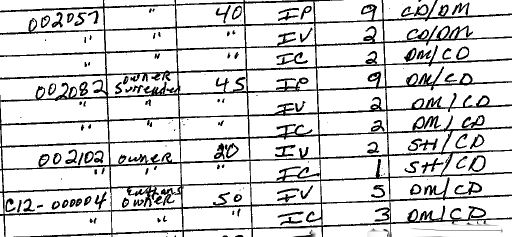 002057 " 40 IP 9 CD/DM
" " " IV 2 CD/DM
" " " IC 2 DM/CD
002082 owner Surrender 45 IP 9 DM/CD
" " " IV 2 DM/CD
" " " IC 2 DM/CD
002102 owner 20 IV 2 SH/CD
" " " IC 1 SH/CD
C12-000004 owner 50 IV 5 DM/CD
" " " IC 3 DM/CD